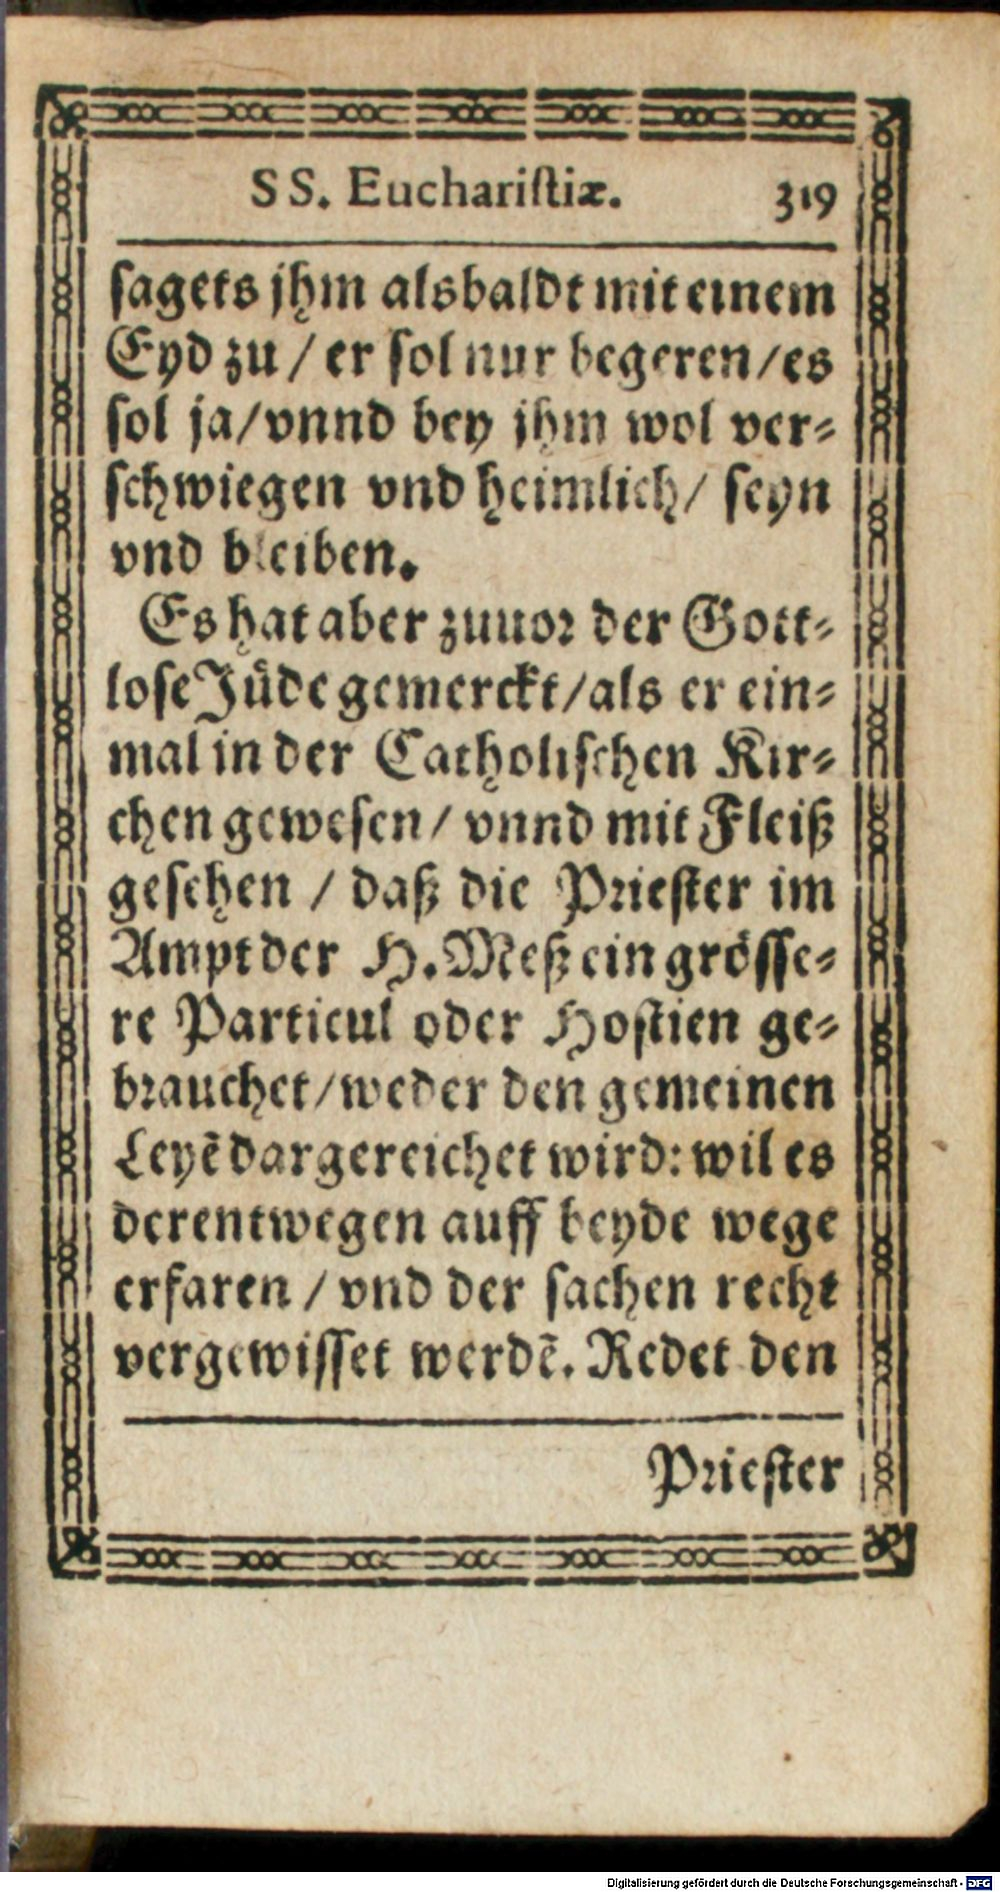 SS. Euchariſtiæ. 319
ſagets jhm alsbaldt mit einem
Eyd zu / er ſol nur begeren/es
ſol ja/vnnd bey jhm wol ver⸗
ſchwiegen vnd heimlich/ ſeyn
vnd bleiben.
Es hat aber zuuor der Gott⸗
loſe Jüde gemerckt/als er ein⸗
mal in der Catholiſchen Kir⸗
chen geweſen/ vnnd mit Fleiß
geſehen / daß die Prieſter im
Ampt der H. Meß ein gröſſe⸗
re Particul oder Hoſtien ge⸗
brauchet/weder den gemeinen
Leyẽ dargereichet wird: wil es
derentwegen auff beyde wege
erfaren / vnd der ſachen recht
vergewiſſet werdẽ. Redet den
Prieſter
Digitalisierung gefördert durch die Deutsche Forschungsgemeinschaft - DFG